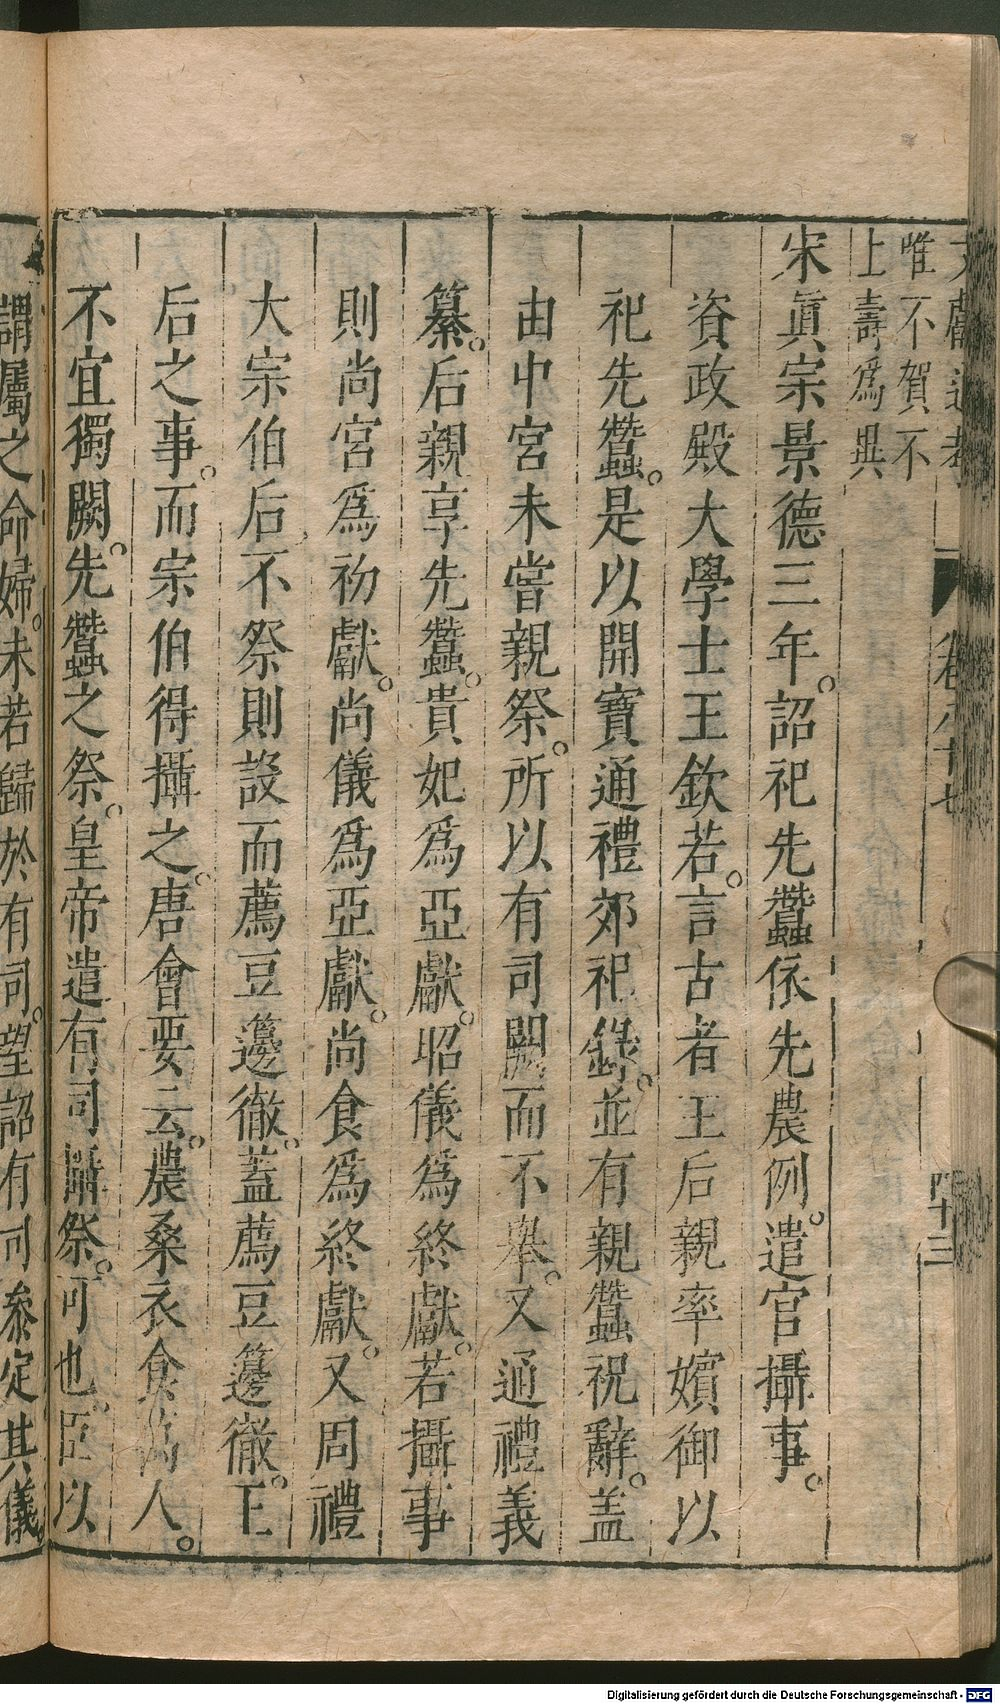 文獻通考 卷八十七 四十三
唯不賀不
上壽爲異
宋眞宗景德三年。詔祀先蠶依先農例。遣官攝事。
資政殿大學士王欽若。言古者王后親率嬪御以
祀先蠶。是以開寶通禮郊祀錄。並有親蠶祝辭。蓋
由中宮未嘗親祭。所以有司闕而不舉。又通禮義
纂。后親享先蠶。貴妃爲亞獻。昭儀爲終獻。若攝事
則尚宮爲初獻。尚儀爲亞獻。尚食爲終獻。又周禮
大宗伯后不祭則設而薦豆籩徹。蓋薦豆籩徹。王
后之事。而宗伯得攝之。唐會要云。農桑衣食萬人。
不宜獨闕。先蠶之祭。皇帝遣有司攝祭。可也。臣以
謂屬之命婦。未若歸於有司。望詔有司參定其儀。
Digitalisierung gefördert durch die Deutsche Forschungsgemeinschaft - DFG